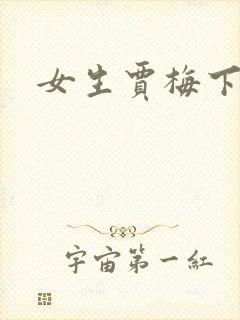 女生贾梅下
宇宙第一红